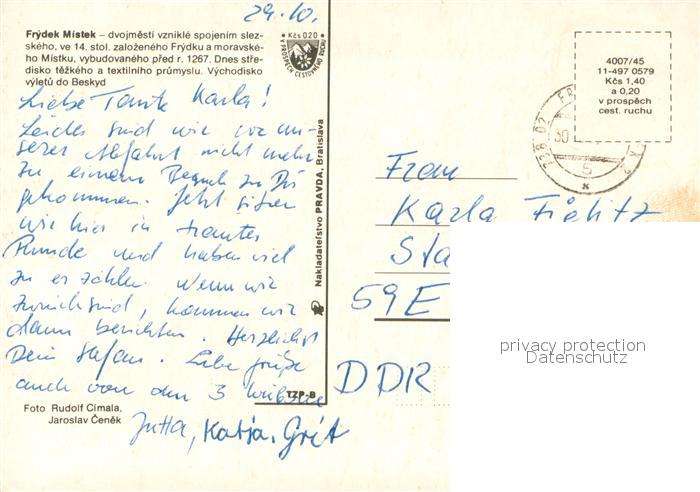 29.10.
Frýdek Místek – dvojměstí vzniklé spojením slez-
ského, ve 14. stol. založeného Frýdku a moravské-
ho Místku, vybudovaného před r. 1267. Dnes stře-
disko těžkého a textilního průmyslu. Východisko
výletů do Beskyd
Kčs 0 20
V PROSPĚCH CESTOVNÍHO RUCHU
Liebe Tante Karla!
Leider sind wir vor un-
serer Abfahrt nicht mehr
zu einem Besuch zu Dir
gekommen. Jetzt sitzen
wir hier in trauter
Runde und haben viel
zu erzählen. Wenn wir
zurück sind, kommen wir
dann berichten. Herzlichst
Dein Stefan. Liebe Grüße
auch von den 3 Weibern
Jutta, Katja, Grit
Foto Rudolf Címala,
Jaroslav Čeněk
Nakladatelství PRAVDA, Bratislava
TZP-B
4007/45
11-497 0579
Kčs 1,40
a 0,20
v prospěch
cest. ruchu
738 02
5
Frau
Karla Fiölitz
Sta
59E
DDR
privacy protection
Datenschutz